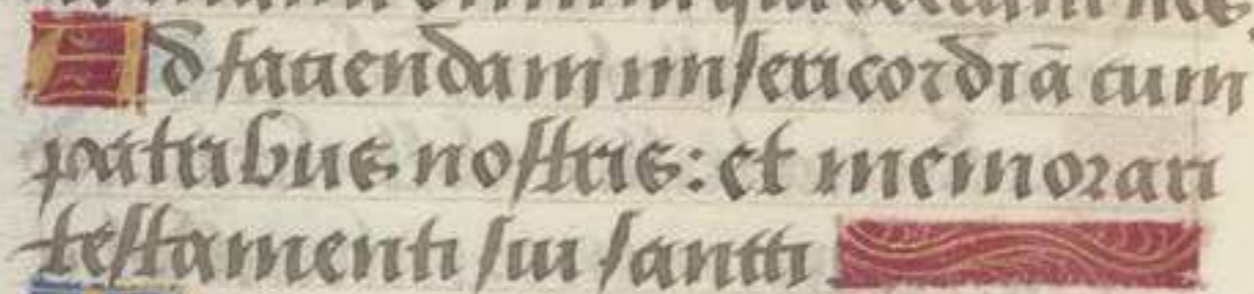 Ad faciendam misericordiā cum
patribus nostris: et memorari
testamenti sui sancti